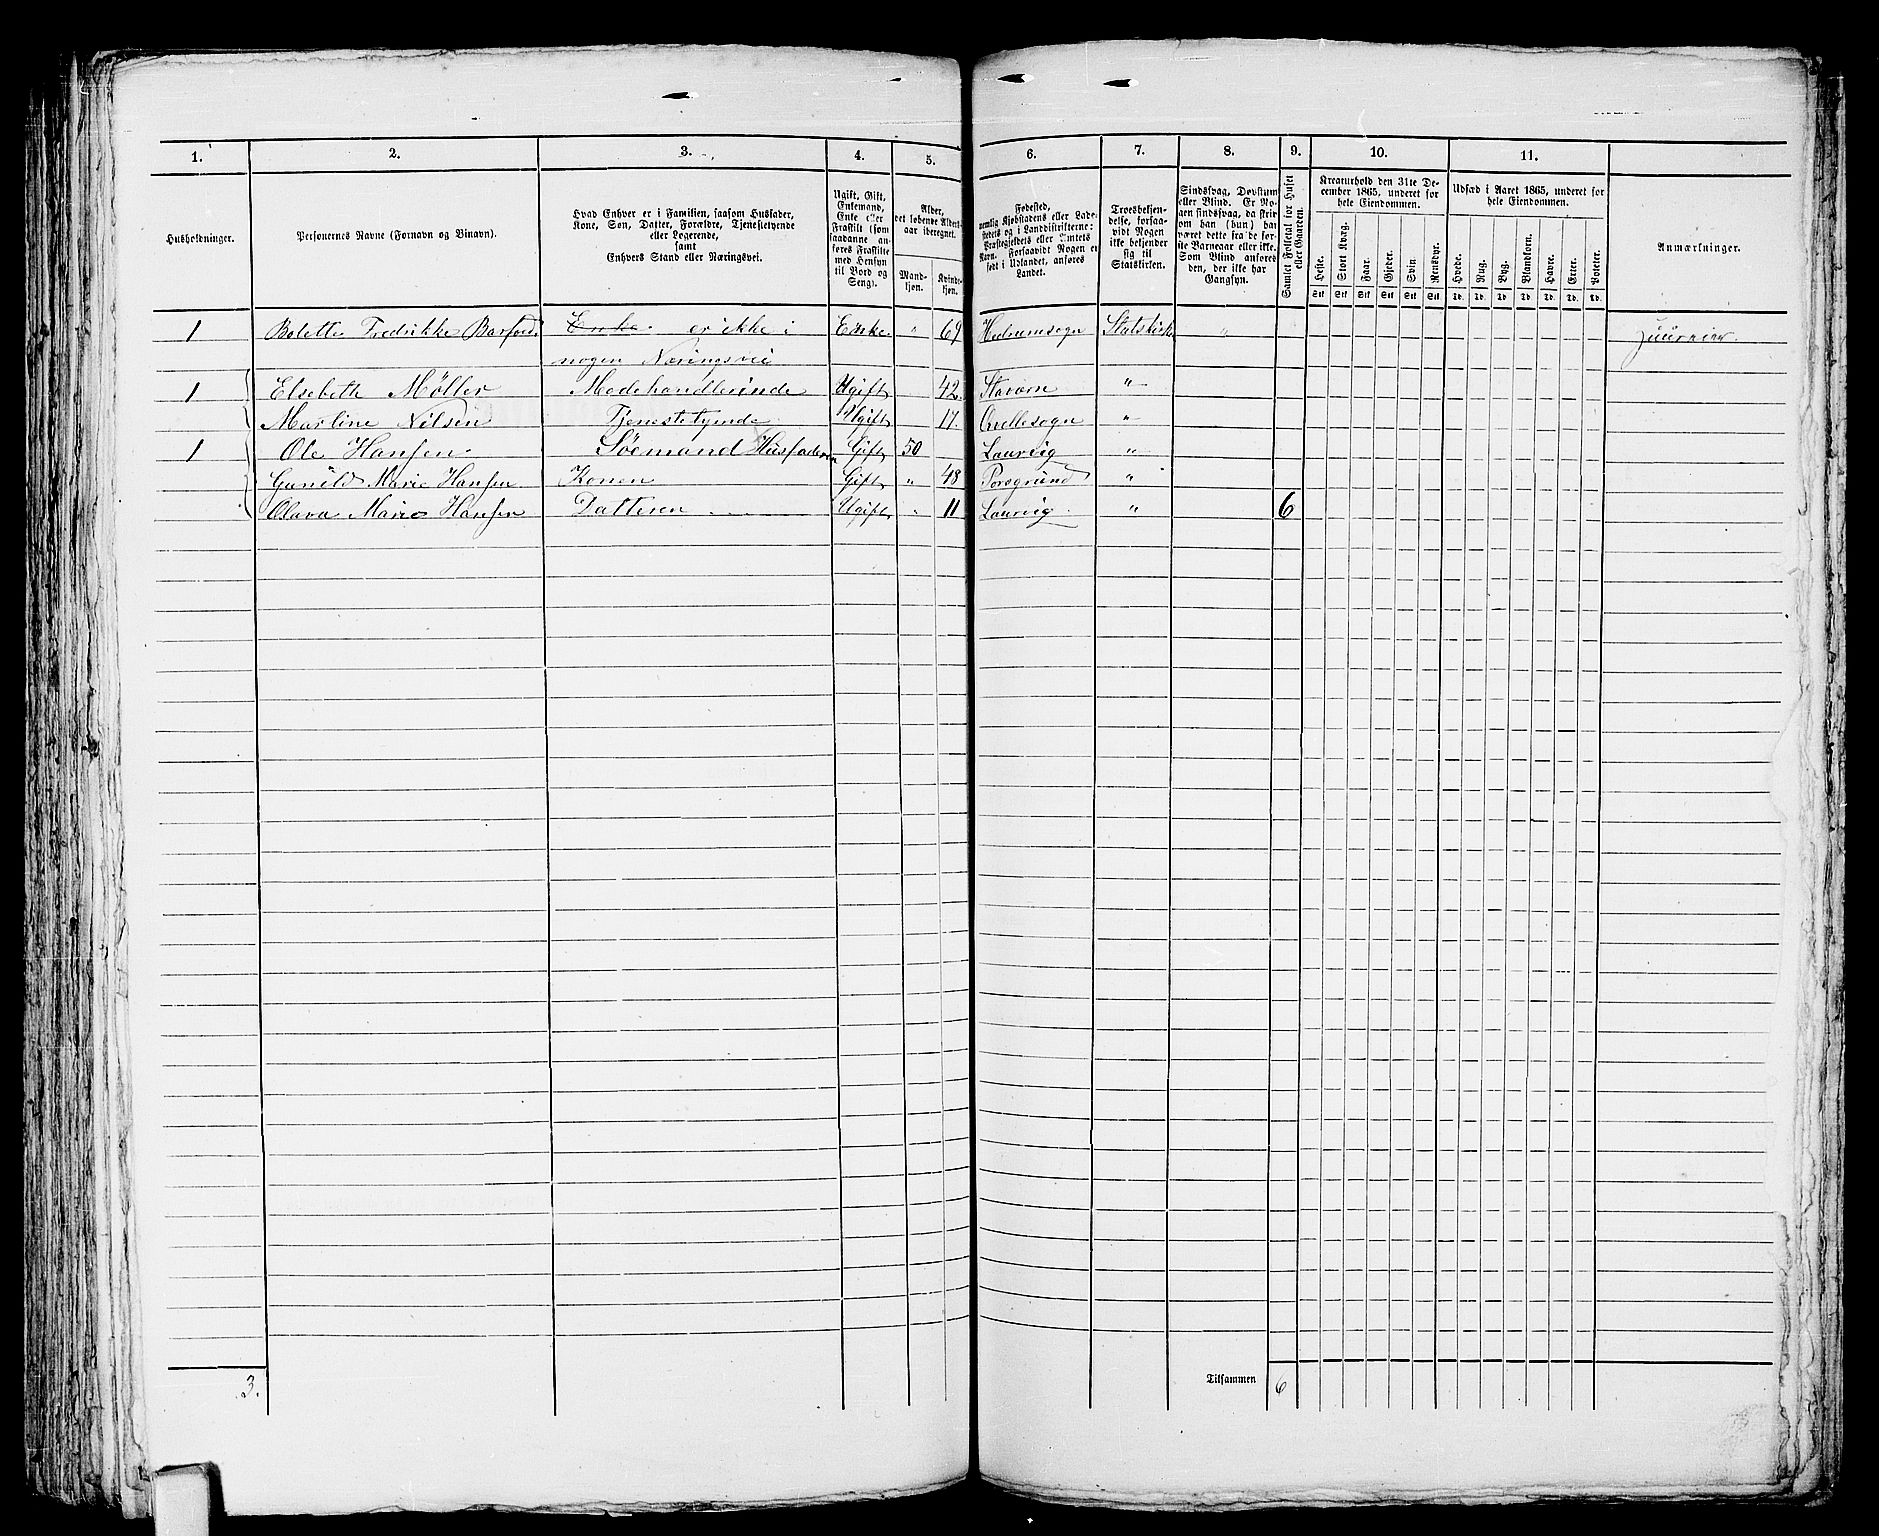 1. 2. 3. 4. 5. 6. 7. 8. 9. 10. 11.
Husholdninger.
Personernes Navne (Fornavn og Binavn).
Hvad Enhver er i Familien, saasom Husfader,
Kone, Søn, Datter, Forældre, Tjenestetyende
eller Logerende,
samt
Enhvers Stand eller Næringsvei.
Ugift, Gift,
Enkemand,
Enke eller
Fraskilt (som
saadanne an-
føres Fraskilte
med Hensyn
til Bord og
Seng).
Alder,
det løbende Alders-
aar iberegnet.
Mand-
kjøn.
Kvinde-
kjøn.
Fødested,
nemlig Kjøbstadens eller Lade-
stedets eller i Landdistrikterne:
Præstegjeldets eller Amtets
Navn. Forsaavidt Nogen er
født i Udlandet, anføres
Landet.
Troesbekjen-
delse, forsaa-
vidt Nogen
ikke bekjender
sig til
Statskirken.
Sindssvag, Døvstum
eller Blind. Er No-
gen sindssvag, da skrives
om han (hun) har
været dette fra de før-
ste Barneaar eller ikke.
Som Blind anføres
den, der ikke har
Gangsyn.
Samlet Folketal for Huset
eller Gaarden.
Kreaturhold den 31te De-
cember 1865, underet for
hele Eiendommen.
Heste. Stort Kvæg. Faar. Gjeder. Svin Rensdyr.
Stk Stk Stk Stk Stk Stk
Udsæd i Aaret 1865, underet for
hele Eiendommen.
Hvede. Rug. Byg. Blandkorn. Havre. Erter. Poteter.
Td. Td. Td. Td. Td. Td. Td.
Anmærkninger.
1 Bolette Fredrikke Enke. er ikke i Enke. " 69 Hedrumsogn Statskirk "
nogen Næringsvei
1 Elsebeth Møller Modehandlerinde Ugift 42. Stavørn "
Martine Nilsen Tjenestetyende Ugift 17. "
1 Ole Hansen Søemand Husfaderen Gift 50 Laurvig "
Gunild Marie Hansen Konen Gift " 48 Porsgrund "
Olava Marie Hansen Datteren Ugift " 11 Laurvig " 6
3. Tilsammen 6